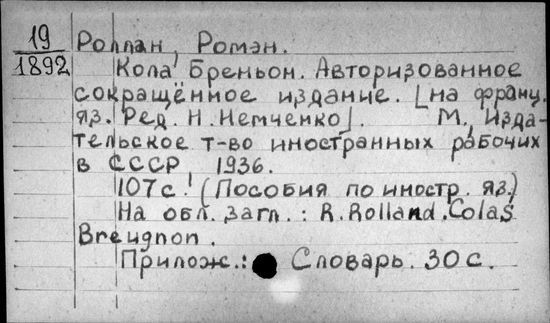 19
1892
Роллан, Ромэн.
Кола Бреньон. Авторизованное
сокращённое издание. [на франц.
яз. Ред. Н. Немченко]. М., Изда-
тельское т-во иностранных рабочих
в СССР 1936.
107 с. (Пособия по иностр. яз.)
На обл. загл.: R. Rolland. Colas
Breugnon.
Прилож.: Словарь. 30 с.